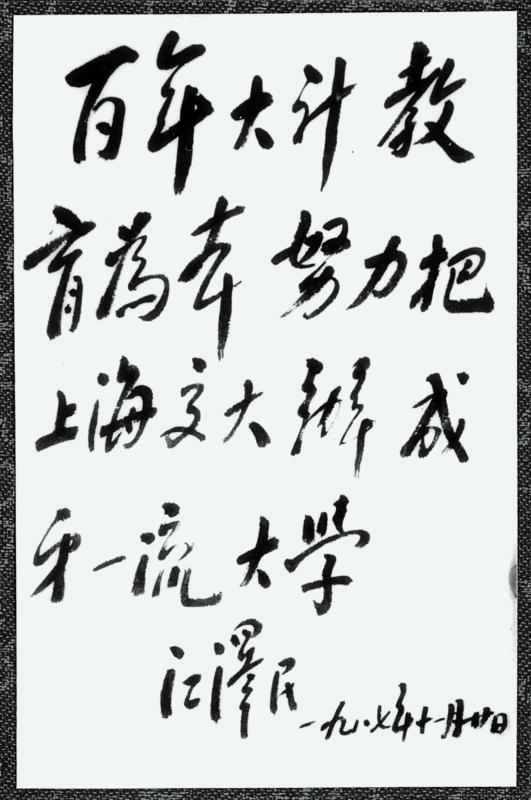 百年大计教
育为本努力把
上海交大办成
第一流大学
江泽民
一九八七年十一月廿日